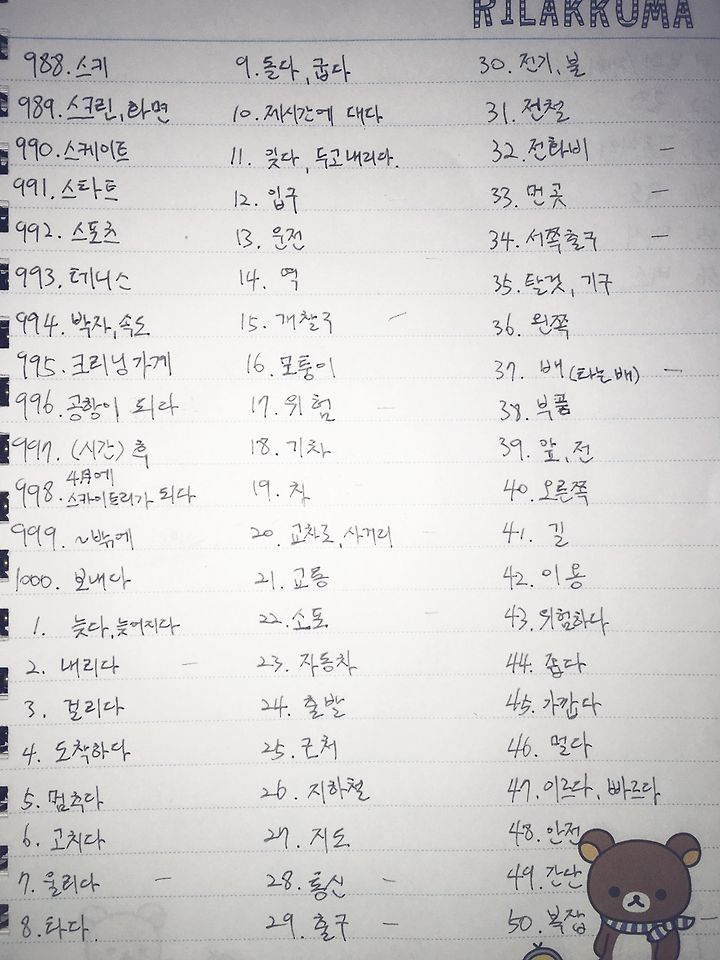 RILAKKUMA
988. 스키
989. 스크린, 화면
990. 스케이트
991. 스타트
992. 스포츠
993. 테니스
994. 박자, 속도
995. 크리닝가게
996. 공항이 되다
997. (시간) 후
998. 4月에 스카이트리가 되다
999. ~밖에
1000. 보내다
1. 늦다, 늦어지다
2. 내리다 -
3. 걸리다
4. 도착하다
5. 멈추다
6. 고치다
7. 울리다 -
8. 타다
9. 돌다, 굽다
10. 제시간에 대다
11. 잊다, 두고내리다.
12. 입구
13. 운전
14. 역
15. 개찰구 -
16. 모퉁이
17. 위험 -
18. 기차
19. 차
20. 교차로, 사거리 -
21. 교통
22. 소포 -
23. 자동차
24. 출발
25. 근처
26. 지하철
27. 지도
28. 통신 -
29. 출구 -
30. 전기, 불
31. 전철
32. 전화비 -
33. 먼곳 -
34. 서쪽출구 -
35. 탈것, 기구
36. 왼쪽
37. 배 (타는배) -
38. 부품
39. 앞, 전
40. 오른쪽
41. 길
42. 이용
43. 위험하다
44. 좁다
45. 가깝다
46. 멀다
47. 이르다, 빠르다
48. 안전
49. 간단
50. 복잡 -